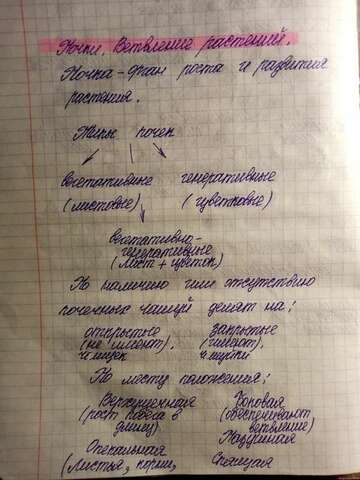 Почки. Ветвление растений.
Почка - орган роста и развития
растения.
Типы почек
вегетативные генеративные
(листовые) (цветковые)
вегетативно-
генеративные
(лист + цветок)
По наличию или отсутствию
почечных чешуй делят на:
открытые закрытые
(не имеют), (имеют),
По месту положения:
Верхушечная Боковая
(рост побега в (обеспечивают
длину) ветвление)
Пазушная
Спящая
(листья, корни,